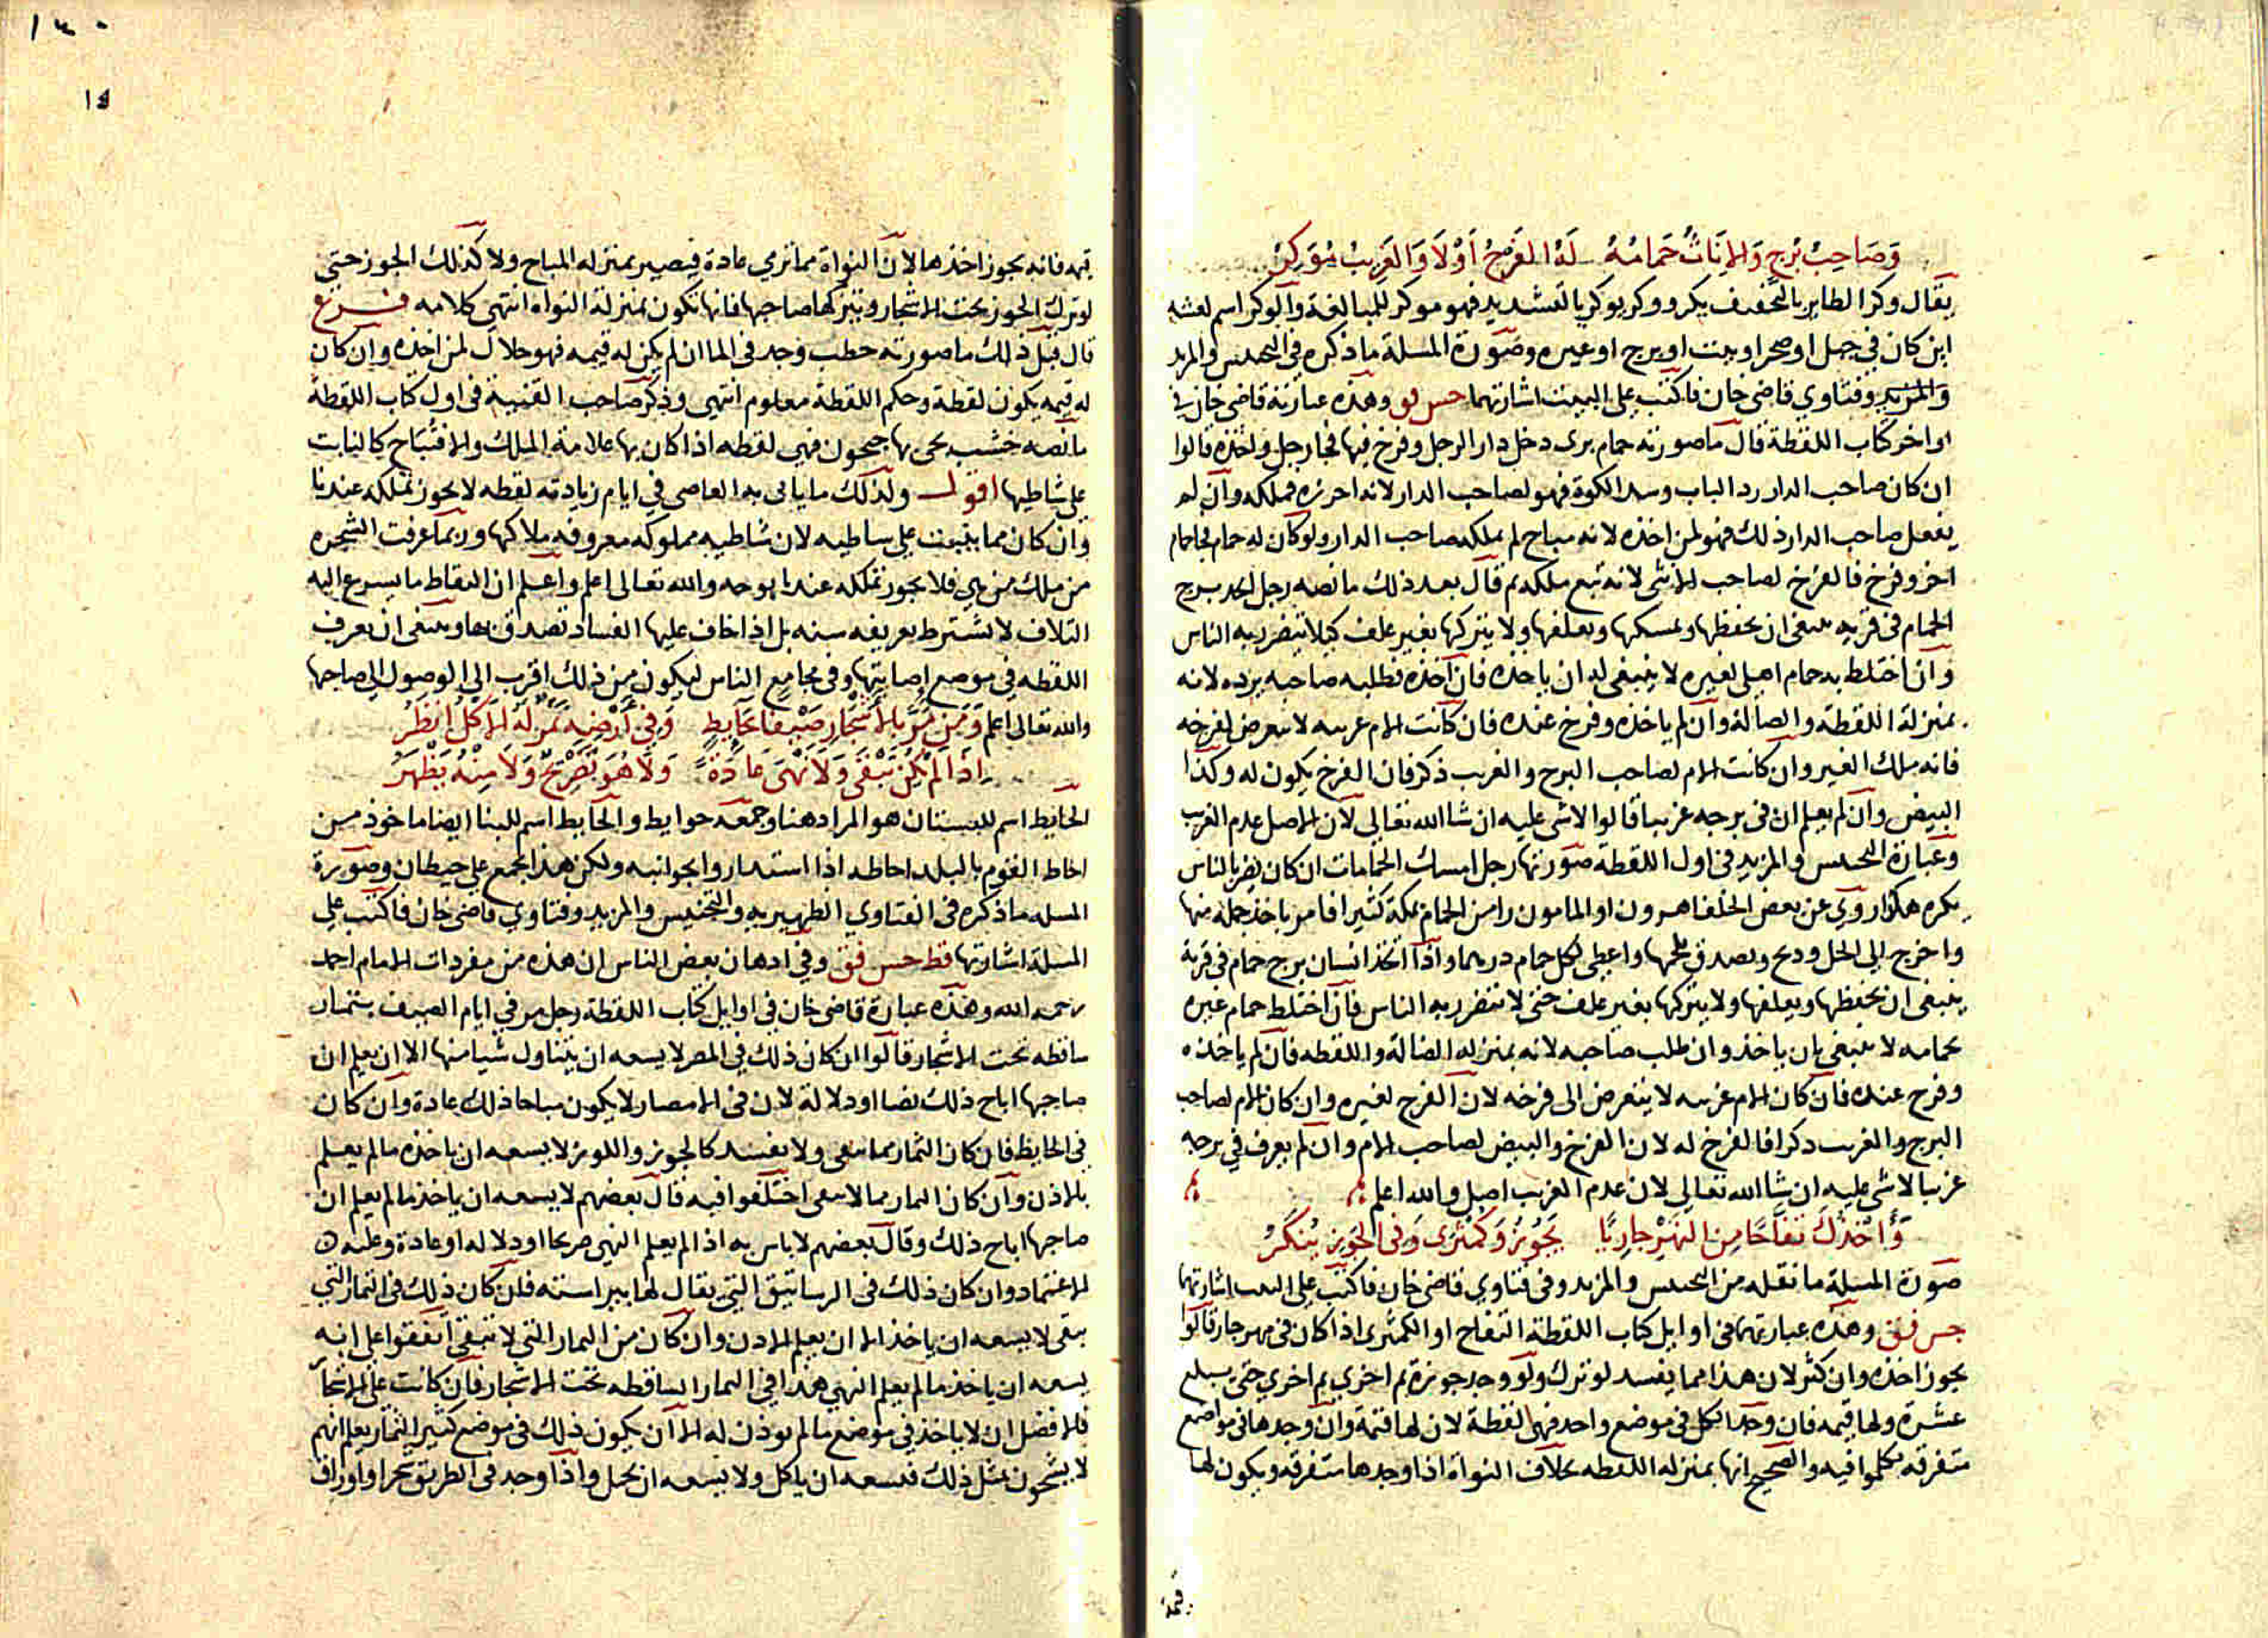 وَصَاحِبُ بُرجٍ وَالاِنَاثُ حَمَامُهُ لَهُ الفَرخُ أَوْلاَ وَالغَرِيبُ مُوَكِرُ
يقال وكر الطاير بالتخفيف يكر ووكر يوكر بالتشديد فهو موكر للمبالغة والوكر اسم لعشه
اين كان في جبل او صحرا او بيت او برج او غيره وصورة المسلة ما ذكره في التجنيس والمزيد
والمزيد وفتاوي قاضي خان فاكتب على البيت اشارتهما حس قو وهذه عبارته قاضي خان في
اواخر كتاب اللقطة قال ما صورته حمام بري دخل دار الرجل وفرخ فيها فجا رجل واخذه قالوا
ان كان صاحب الدار رد الباب وسد الكوة فهو لصاحب الدار لانه احرزه فملكه وان لم
يفعل صاحب الدار ذلك فهو لمن اخذه لانه مباح لم يملكه صاحب الدار ولو كان له حمام فجا حمام
اخر وفرخ فالفرخ لصاحب الانثى لانه تبع ملكه ثم قال بعد ذلك ما نصه رجل اتخذ برج
الحمام في قرية ينبغي ان يحفظها ويمسكها ويعلفها ولا يتركها بغير علف كيلا يتضرر به الناس
وان اختلط به حمام اهلي لغيره لا ينبغي له ان ياخذه فان اخذه فطلبه صاحبه يرده لانه
بمنزلة اللقطة والضالة وان لم ياخذه وفرخ عنده فان كانت الام غريبه لا يتعرض لفرخه
فانه ملك الغير وان كانت الام لصاحب البرج والغريب ذكر فان الفرخ يكون له وكذا
البيض وان لم يعلم ان في برجه غريبا قالوا لاشي عليه ان شا الله تعالى لان الاصل عدم الغريب
وعبارة التجنيس والمزيد في اول اللقطة صورتها رجل امسك الحمامات ان كان يضر بالناس
يكره هكذا روي عن بعض الخلفا هرون او المامون راى من الحمام بمكة كثيرا فامر باخذ جملة منها
واخرج الى الحل وذبح وتصدق بلحمها واعطى لكل حمام درهما واذا اتخذ انسان برج حمام في قرية
ينبغي ان يحفظها ويعلفها ولا يتركها بغير علف حتى لا تتضرر به الناس فان اختلط حمام غيره
بحمامه لا ينبغي بان ياخذ وان طلب صاحبه لانه بمنزله الضالة واللقطه فان لم ياخذه
وفرخ عنده فان كان الام غريبه لا يتعرض الى فرخه لان الفرخ لغيره وان كان الام لصاحب
البرج والغريب ذكرا فالفرخ له لان الفرخ والبيض لصاحب الام وان لم يعرف في برجه
غريبا لاشي عليه ان شا الله تعالى لان عدم الغريب اصل والله اعلم
وَأَخْذُكَ تفَّاحًا مِنَ النهَرِ جارِيًا يَجُوزُ وَكمثرَى وَفي الجَوزِ يُنكَرُ
صورة المسلة ما نقله من التجنيس والمزيد وفي فتاوي قاضي خان فاكتب على البيت اشارتهما
حس قق وهذه عبارتهما في اوايل كتاب اللقطة التفاح او الكمثرى اذا كان في نهر جار قالوا
يجوز اخذه وان كثر لان هذا مما يفسد لو ترك ولو وجد جوزة ثم اخري ثم اخري حتى يبلغ
عشرة ولها قيمه فان وجد الكل في موضع واحد فهي لقطة لان لها قيمة وان وجدها في مواضع
متفرقه تكلموا فيه والصحيح انها بمنزله اللقطه بخلاف النواة اذا وجدها متفرقه ويكون لها
قيمة
قيمه فانه يجوز اخذها لان النواة مما ترمي عادة فيصير بمنزله المباح ولا كذلك الجوز حتى
لو ترك الجوز تحت الاشجار وتركها صاحبها فانها تكون بمنزلة النواه انتهى كلامه فرع
قال قبل ذلك ما صورته حطب وجد في الما ان لم يكن له قيمه فهو حلال لمن اخذه وان كان
له قيمه يكون لقطة وحكم اللقطة معلوم انتهى وذكر صاحب القنية في اول كتاب اللقطة
ما نصه خشب يجي بها جيحون فهي لقطه اذا كان بها علامة الملك والا فتباح كالنابت
على شاطيها اقول ولذلك ما ياتي به العاصي في ايام زيادته لقطه لا يجوز تملكه عندنا
وان كان مما ينبت على شاطيه لان شاطيه مملوكه معروفه ملاكها وربما عرفت الشجره
من ملك من هي فلا يجوز تملكه عندنا بوجه والله تعالى اعلم واعلم ان التقاط ما يسرع اليه
التلاف لا تشترط تعريفه سنه بل اذا خاف عليها الفساد تصدق بها وينبغي ان يعرف
اللقطه في موضع اصابتها وفي مجامع الناس ليكون من ذلك اقرب الى الوصول الى صاحبها
والله تعالى اعلم وَمَن مَرَّ بالأَشجَارِ صَيفًا بحَايِطٍ وَفي أَرْضِه ثَمَرٌ لَهُ الاكلُ اِنظُرُ
اِذَا لَمْ يَكُن تَبْقَى وَلاَ نَهْيَ عَادَةً وَلاَ هُوَ تَصْرِيحٌ وَلاَ مِنْهُ يَظْهَرُ
الحايط اسم للبستان هو المراد هنا وجمعه حوايط والحايط اسم للبنا ايضا ماخوذ من
احاط القوم بالبلد احاطه اذا استداروا بجوانبه ولكن هذا يجمع على حيطان وصورة
المسله ما ذكره في الفتاوي الظهيريه والتجنيس والمزيد وفتاوي قاضي خان فاكتب على
المسلة اشارتها قط حس قق وفي اذهان بعض الناس ان هذه من مفردات الامام احمد
رحمه الله وهذه عبارة قاضي خان في اوايل كتاب اللقطة رجل مر في ايام الصيف بثمار
ساقطه تحت الاشجار قالوا ان كان ذلك في المصر لا يسعه ان يتناول شيا منها الا ان يعلم ان
صاحبها اباح ذلك نصا او دلالة لان في الامصار لا يكون مباحا ذلك عادة وان كان
في الحايط فان كان الثمار مما يبقى ولا يفسد كالجوز واللوز لا يسعه ان ياخذه ما لم يعلم
بالاذن وان كان الثمار مما لا يبقى اختلفوا فيه قال بعضهم لا يسعه ان ياخذ ما لم يعلم ان
صاحبها اباح ذلك وقال بعضهم لا باس به اذا لم يعلم النهي صريحا او دلاله او عادة وعليه
الاعتماد وان كان ذلك في الرساتيق التي يقال لها بيراسته فان كان ذلك في الثمار التي
تبقى لا يسعه ان ياخذ الا ان يعلم الاذن وان كان من الثمار التي لا تبقى اتفقوا على انه
يسعه ان ياخذ ما لم يعلم النهي هذا في الثمار الساقطه تحت الاشجار فان كانت على الاشجار
فالافضل ان لا ياخذ في موضع ما لم يوذن له الا ان يكون ذلك في موضع كثير الثمار يعلم انهم
لا يشحون بمثل ذلك فيسعه ان ياكل ولا يسعه ان يحمل واذا وجد في الطريق شجرا واوراق